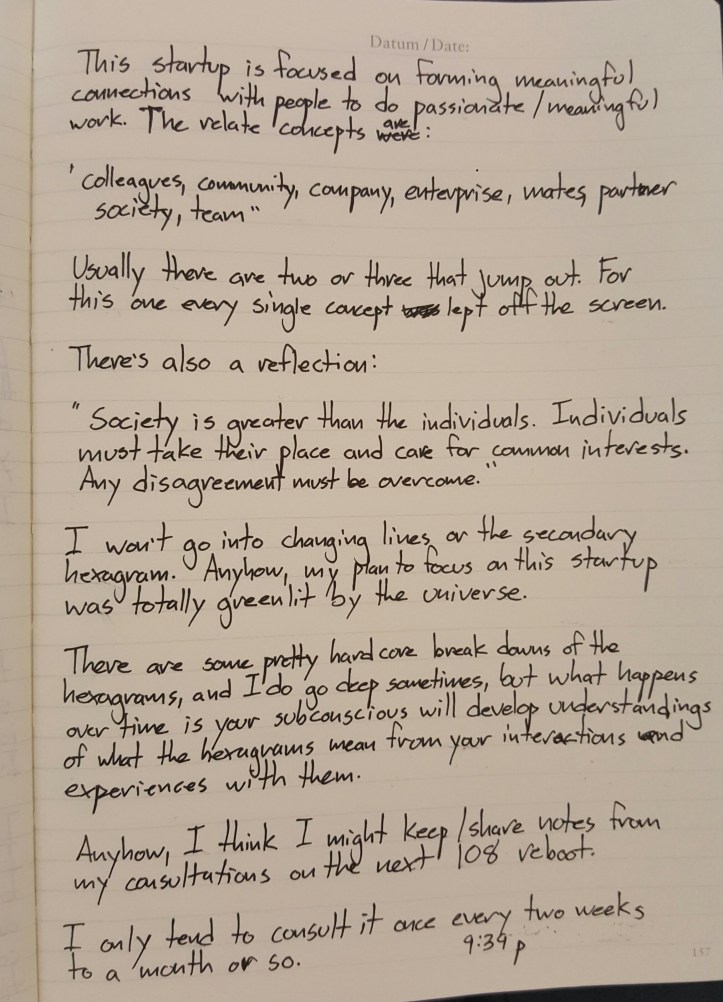 Datum / Date:
This startup is focused on forming meaningful
connections with people to do passionate / meaningful
work. The relate concepts are:
'colleagues, community, company, enterprise, mates, partner
society, team"
Usually there are two or three that jump out. For
this one every single concept lept off the screen.
There's also a reflection:
"Society is greater than the individuals. Individuals
must take their place and care for common interests.
Any disagreement must be overcome."
I won't go into changing lines or the secondary
hexagram. Anyhow, my plan to focus on this startup
was totally greenlit by the universe.
There are some pretty hardcore break downs of the
hexagrams, and I do go deep sometimes, but what happens
over time is your subconscious will develop understandings
of what the hexagrams mean from your interactions and
experiences with them.
Anyhow, I think I might keep/share notes from
my consultations on the next 108 reboot.
I only tend to consult it once every two weeks
to a month or so.
9:39 p
157